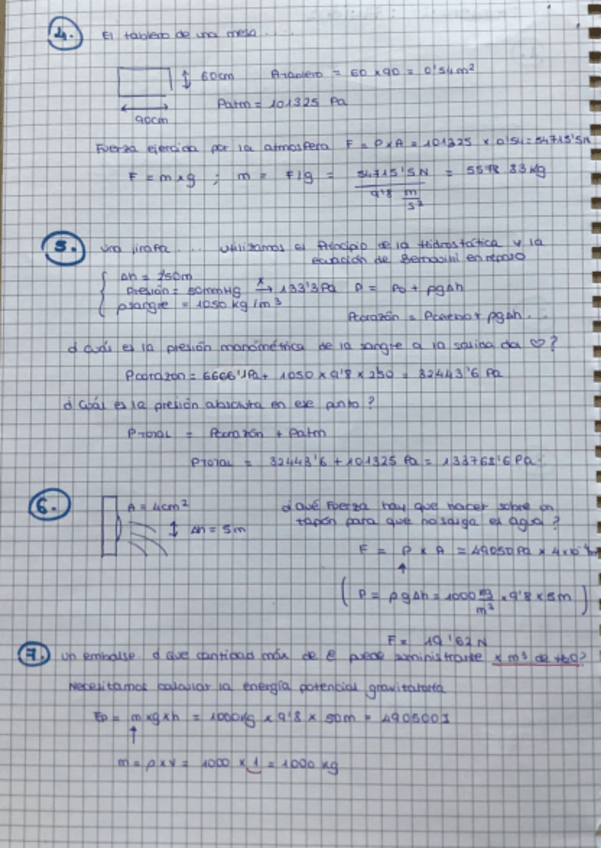 4. El tablero de una mesa ...
60cm
Atablero = 60 x 90 = 0'54 m²
Patm = 101325 Pa
90cm
Fuerza ejercida por la atmosfera F = P x A = 101325 x 0'54 = 54715'5N
F = m x g ; m = F/g = 54715'5N / 9'8 m/s² = 5578.33 Kg
5. Una jirafa .... utilizamos el Principio de la Hidrostática y la
ecuación de Bernouilli en reposo
Δh = 250m
Presión = 50mmHg x→ 133'3Pa P = Po + ρgΔh
ρsangre = 1050 kg/m³
Pcorazón = Pcerebro + ρgΔh...
d Cuál es la presión manométrica de la sangre a la salida da ♡?
Pcorazón = 6666'1Pa + 1050 x 9'8 x 250 = 32443'6 Pa
d Cuál es la presión absoluta en ese punto?
PTOTAL = Pcorazón + Patm
PTOTAL = 32443'6 + 101325 Pa = 133768'6 Pa
6. A = 4cm²
d qué Fuerza hay que hacer sobre un
tapón para que no salga el agua?
Δh = 5m
F = P x A = 49050 Pa x 4x10
(P = ρgΔh = 1000 kg/m³ x 9'8 x 5m)
F = 19'62 N
7. Un embalse d que cantidad máx de E puede suministrarte x m³ de H2O?
Necesitamos calcular la energía potencial gravitatoria
Ep = m x g x h = 1000kg x 9'8 x 50m = 490500J
m = ρ x v = 1000 x 1 = 1000 kg